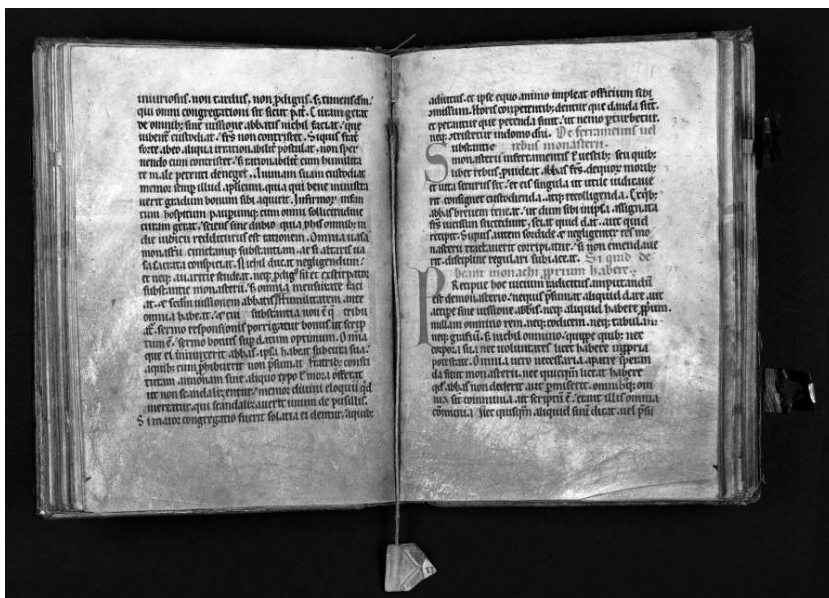 iniuriosus. non tardus, non ꝓdigus. sꝫ timens dm̄.
qui omni congregationi sit sicut pat̄. Curam gerat
de omnibꝫ sine iussione abbatis nichil faciat. que
iubent̄ custodiat. fr̄s non contristet. Siquis frat̄
forte ab eo aliqua irrationabilit̄ postulat. non sper
nendo eum contristet. sꝫ rationabilit̄ cum humilita
te male petenti deneget. Animam suam custodiat
memor semꝑ illud ap̄licum. quia qui bene ministra
uerit gradum bonum sibi aquirit. Infirmoꝝ infan
tum hospitum pauꝑumqꝫ cum omni sollicitudine
curam gerat. sciens sine dubio quia ꝓ his omnibꝫ in
die iudicii redditurus est rationem. Omnia uasa
monast̄ii cunctamqꝫ substantiam. ac si altaris ua
sa sacrata conspiciat. Nichil ducat negligendum.
et neqꝫ auaritie studeat. neqꝫ ꝓdigꝰ sit et exstirpator
substantie monast̄ii. sꝫ omnia mensurate faci
at. & scdm̄ iussionem abbatis. Humilitatem ante
omnia habeat. & cui substantia non ē q̄ tribu
at̄. sermo responsionis porrigatur bonus. ut scrip
tum ē. sermo bonus sup datum optimum. Om̄ia
que ei iniunxerit abbas. ipsa habeat sub cura sua.
a quibꝫ eum ꝓhibuerit non p̄sumat. Fratribꝫ consti
tutam annonam sine aliquo typo ł mora offerat
ut non scandalizentur. memor diuini eloquii qd̄
mereatur qui scandalizauerit unum de pusillis.
Si maior congregatio fuerit solatia ei dentur. a quibꝫ
adiutus et ipse equo animo impleat officium sibi
cōmissum. Horis conpetentibꝫ dentur que danda sūt.
et petantur que petenda sunt. ut nemo ꝑturbetur.
neqꝫ contristetur in domo dn̄i. De ferramentis uel
Substantie rebus monasterii.
monasterii in ferramentis ł uestibꝫ seu quibꝫ
libet rebus. ꝓuideat abbas fr̄s. de quoꝝ moribꝫ
et uita securus sit. et eis singula ut utile iudicaue
rit consignet custodienda. atqꝫ recolligenda. Ex qꝫbꝫ
abbas breuem teneat. ut dum sibi in ipsa assignata
fr̄s uicissim succedunt. sciat quid dat. aut quid
recipit. Siquis autem sordide & negligenter res mo
nasterii tractauerit corripiatur. si non emendaue
rit. discipline regulari subiaceat. Si quid de
beant monachi ꝓprium habere.
Precipue hoc uicium radicitus amputandū
est de monasterio. ne quis p̄sumat aliquid dare aut
accipe sine iussione abb̄is. neqꝫ aliquid habere ꝓprium.
nullam omnino rem. neqꝫ codicem. neqꝫ tabulas.
neqꝫ grafiū. sꝫ nichil omnino. quippe quibꝫ nec
corpora sua nec uoluntates licet habere in ꝓpria
potestate. Omnia uero necessaria a patre speran
da sunt monasterii. nec quicquam liceat habere
qd̄ abbas non dederit aut ꝑmiserit. omnibusqꝫ om
nia sit communia ut scriptū ē. erant illis omnia
cōmunia. Nec quisquam aliquid suū dicat. uel p̄su